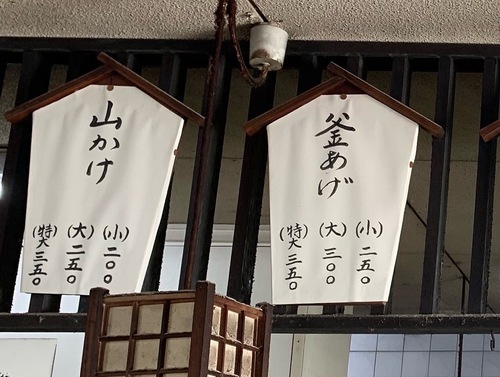 山かけ
(小)二〇〇
(大)二五〇
(特大)三五〇
釜あげ
(小)二五〇
(大)三〇〇
(特大)三五〇